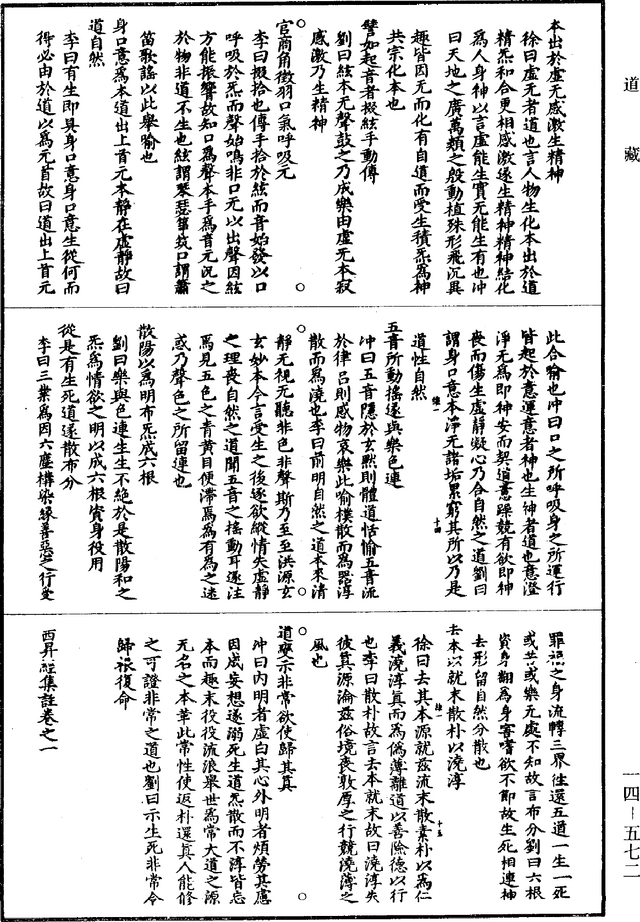 道藏
本出於虛无感激生精神
徐曰虛无者道也言人物生化本出於道
精炁和合更相感激遂生精神精神結化
爲人身神以言虛能生實无能生有也沖
曰天地之廣萬類之殷動植殊形飛沉異
趣皆因无而化有自道而受生積炁爲神
共宗化本也
譬如起音者掇絃手動傳
劉曰絃本无聲鼓之乃成樂由虛无本寂
感激乃生精神
官商角徵羽口氣呼吸元
李曰掇拾也傳手拾於絃而音始發以口
呼吸於炁而聲始鳴非口无以出聲因絃
方能振響故知口爲聲本手爲音元況之
於物非道不生也絃謂琴瑟箏筑口謂簫
笛歌謠以此舉喻也
身口意爲本道出上首元本靜在虛靜故曰
道自然
李曰有生即具身口意身口意生從何而
得必由於道以爲元首故曰道出上首元
此合喻也沖曰口之所呼吸身之所運行
皆起於意運意者神也生神者道也意澄
淨无爲即神安而契道意躁競有欲即神
喪而傷生虛靜凝心乃合自然之道劉曰
謂身口意本淨无諸垢累窮其所以乃是
道性自然
五音所動搖遂與樂色連
沖曰五音隱於玄黙則體道恬愉五音流
於律呂則感物哀樂此喻樸散而爲器淳
散而爲澆也李曰前明自然之道本來清
靜无視无聽非色非聲斯乃至至洪源玄
玄妙本今言受生之後遂欲縱情失虛靜
之理喪自然之道聞五音之搖動耳逐注
焉見五色之青黃目便滯焉爲有爲之迷
惑乃聲色之所留連也
散陽以爲明布炁成六根
劉曰樂與色連生生不絶於是散陽和之
炁爲情欲之明以成六根資身役用
從是有生死道遂散布分
李曰三業爲因六塵構染緣善惡之行受
罪福之身流轉三界往還五道一生一死
或苦或樂无處不知故言布分劉曰六根
資身翻爲身害嗜欲不節故生死相連神
去形留自然分散也
去本以就末散朴以澆淳
徐曰去其本源就兹流末散素朴以爲仁
義澆淳眞而爲僞薄離道以善險德以行
也李曰散朴故言去本就末故曰澆淳失
彼眞源淪兹俗境喪敦厚之行競澆薄之
風也
道變示非常欲使歸其眞
沖曰内明者虛白其心外明者煩勞其慮
因成妄想遂溺死生道炁散而不淳皆忘
本而趣末役役流浪舉世爲常大道之源
无名之本革此常性使返朴還眞人能修
之可證非常之道也劉曰示生死非常令
歸根復命
西昇經集註卷之一
一四—五七二